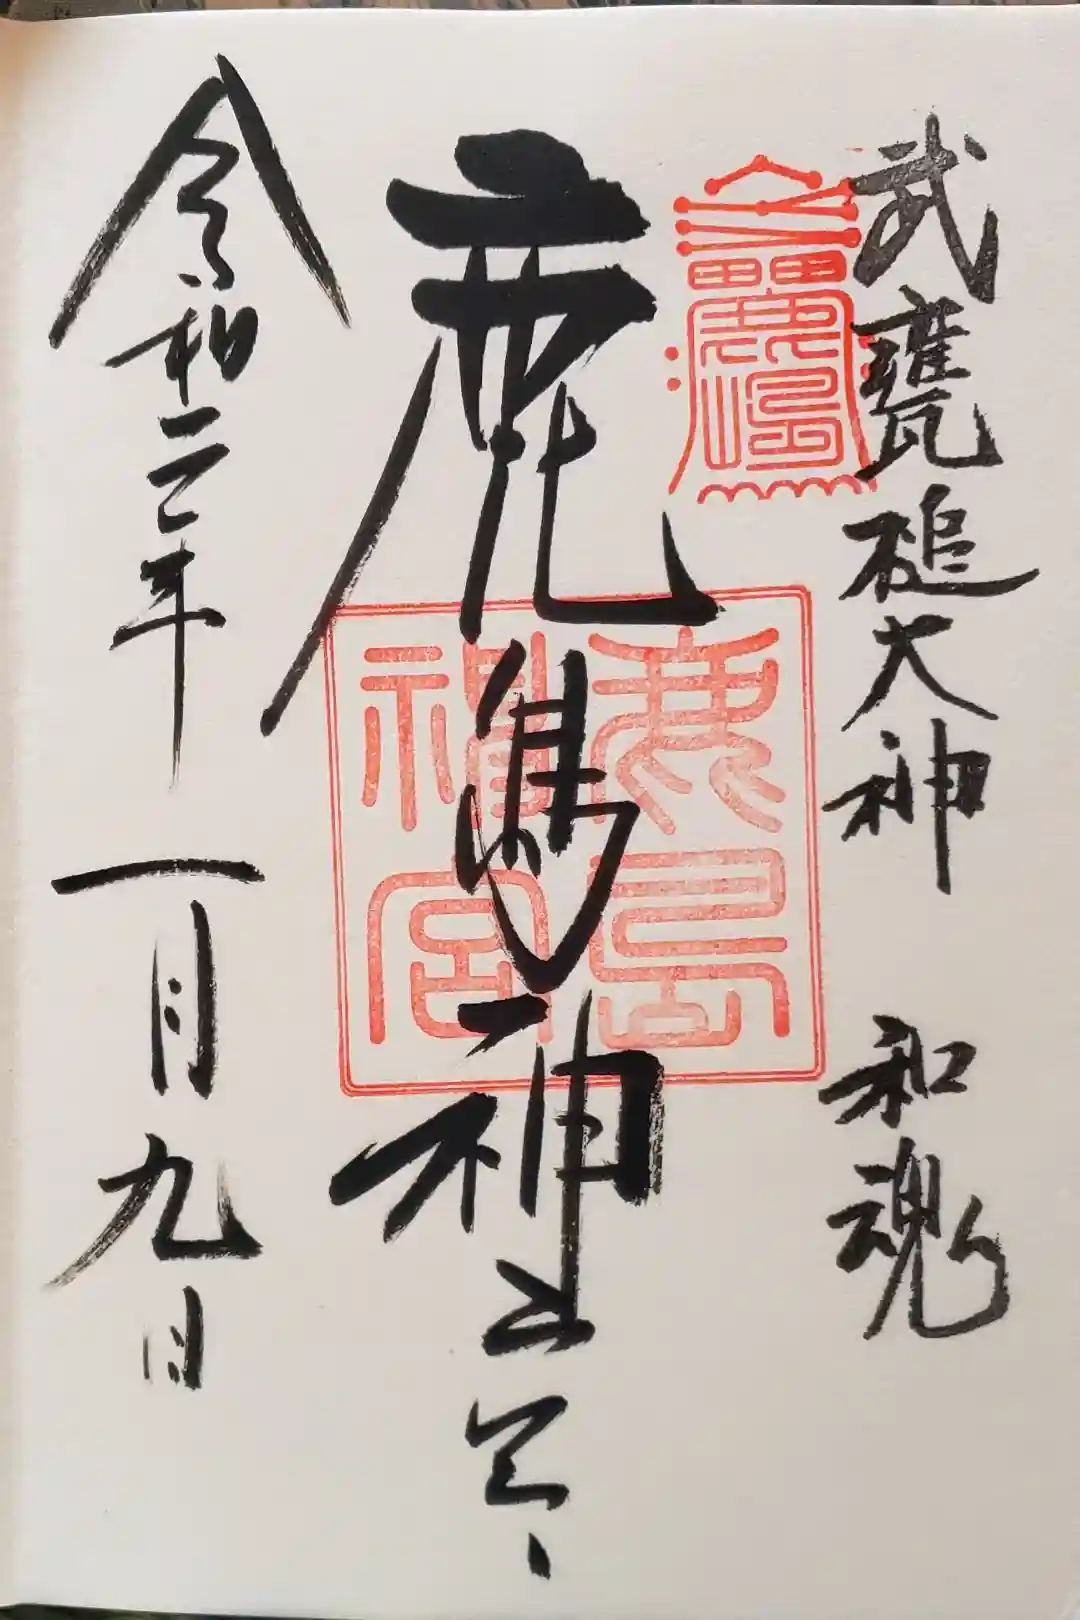 武甕槌大神 和魂
鹿島神宮
鹿島神宮
令和三年一月九日